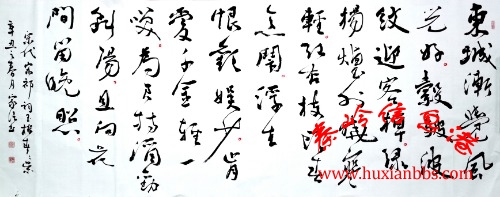 東城漸覺風
光好縠皺波
紋迎客棹綠
楊煙外曉寒
輕紅杏枝頭春
意鬧浮生
長恨歡娛少肯
愛千金輕一
笑為君持酒勸
斜陽且向花
間留晚照
宋代宋祁詞玉樓春
辛丑春月
www.huxianbbs.com